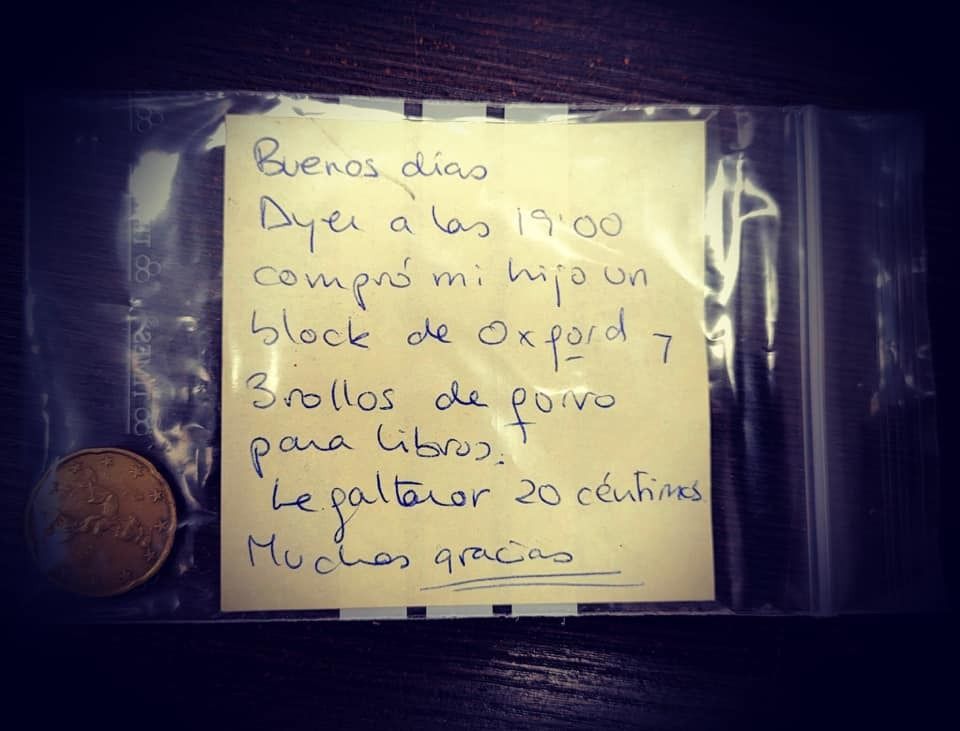 Buenos días
Ayer a las 19:00
compró mi hijo un
block de Oxford y
3 rollos de forro
para libros.
Le faltaron 20 céntimos
Muchas gracias